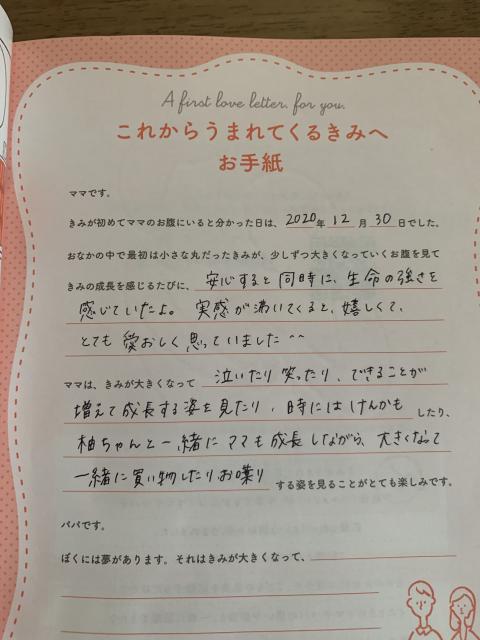 A first love letter. for you.
これからうまれてくるきみへ
お手紙
ママです。
きみが初めてママのお腹にいると分かった日は、2020年 12 月 30 日でした。
おなかの中で最初は小さな丸だったきみが、少しずつ大きくなっていくお腹を見て
きみの成長を感じるたびに、安心すると同時に、生命の強さを
感じていたよ。 実感が沸いてくると、嬉しくて、
とても愛おしく思っていました^^
ママは、きみが大きくなって 泣いたり笑ったり、できることが
増えて成長する姿を見たり、時にはけんかも したり、
柚ちゃんと一緒にママも成長しながら、大きくなって
一緒に買い物したりお喋り する姿を見ることがとても楽しみです。
パパです。
ぼくには夢があります。それはきみが大きくなって、